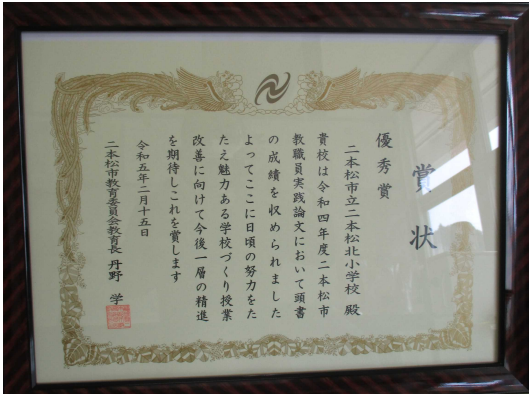 賞状
優秀賞
二本松市立二本松北小学校 殿
貴校は令和四年度二本松市
教職員実践論文において頭書
の成績を収められました
よってここに日頃の努力をた
たえ魅力ある学校づくり授業
改善に向けて今後一層の精進
を期待しこれを賞します
令和五年二月十五日
二本松市教育委員会教育長 丹野 学